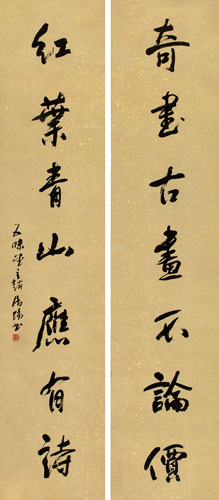 奇書古畫不論價
紅葉青山應有詩